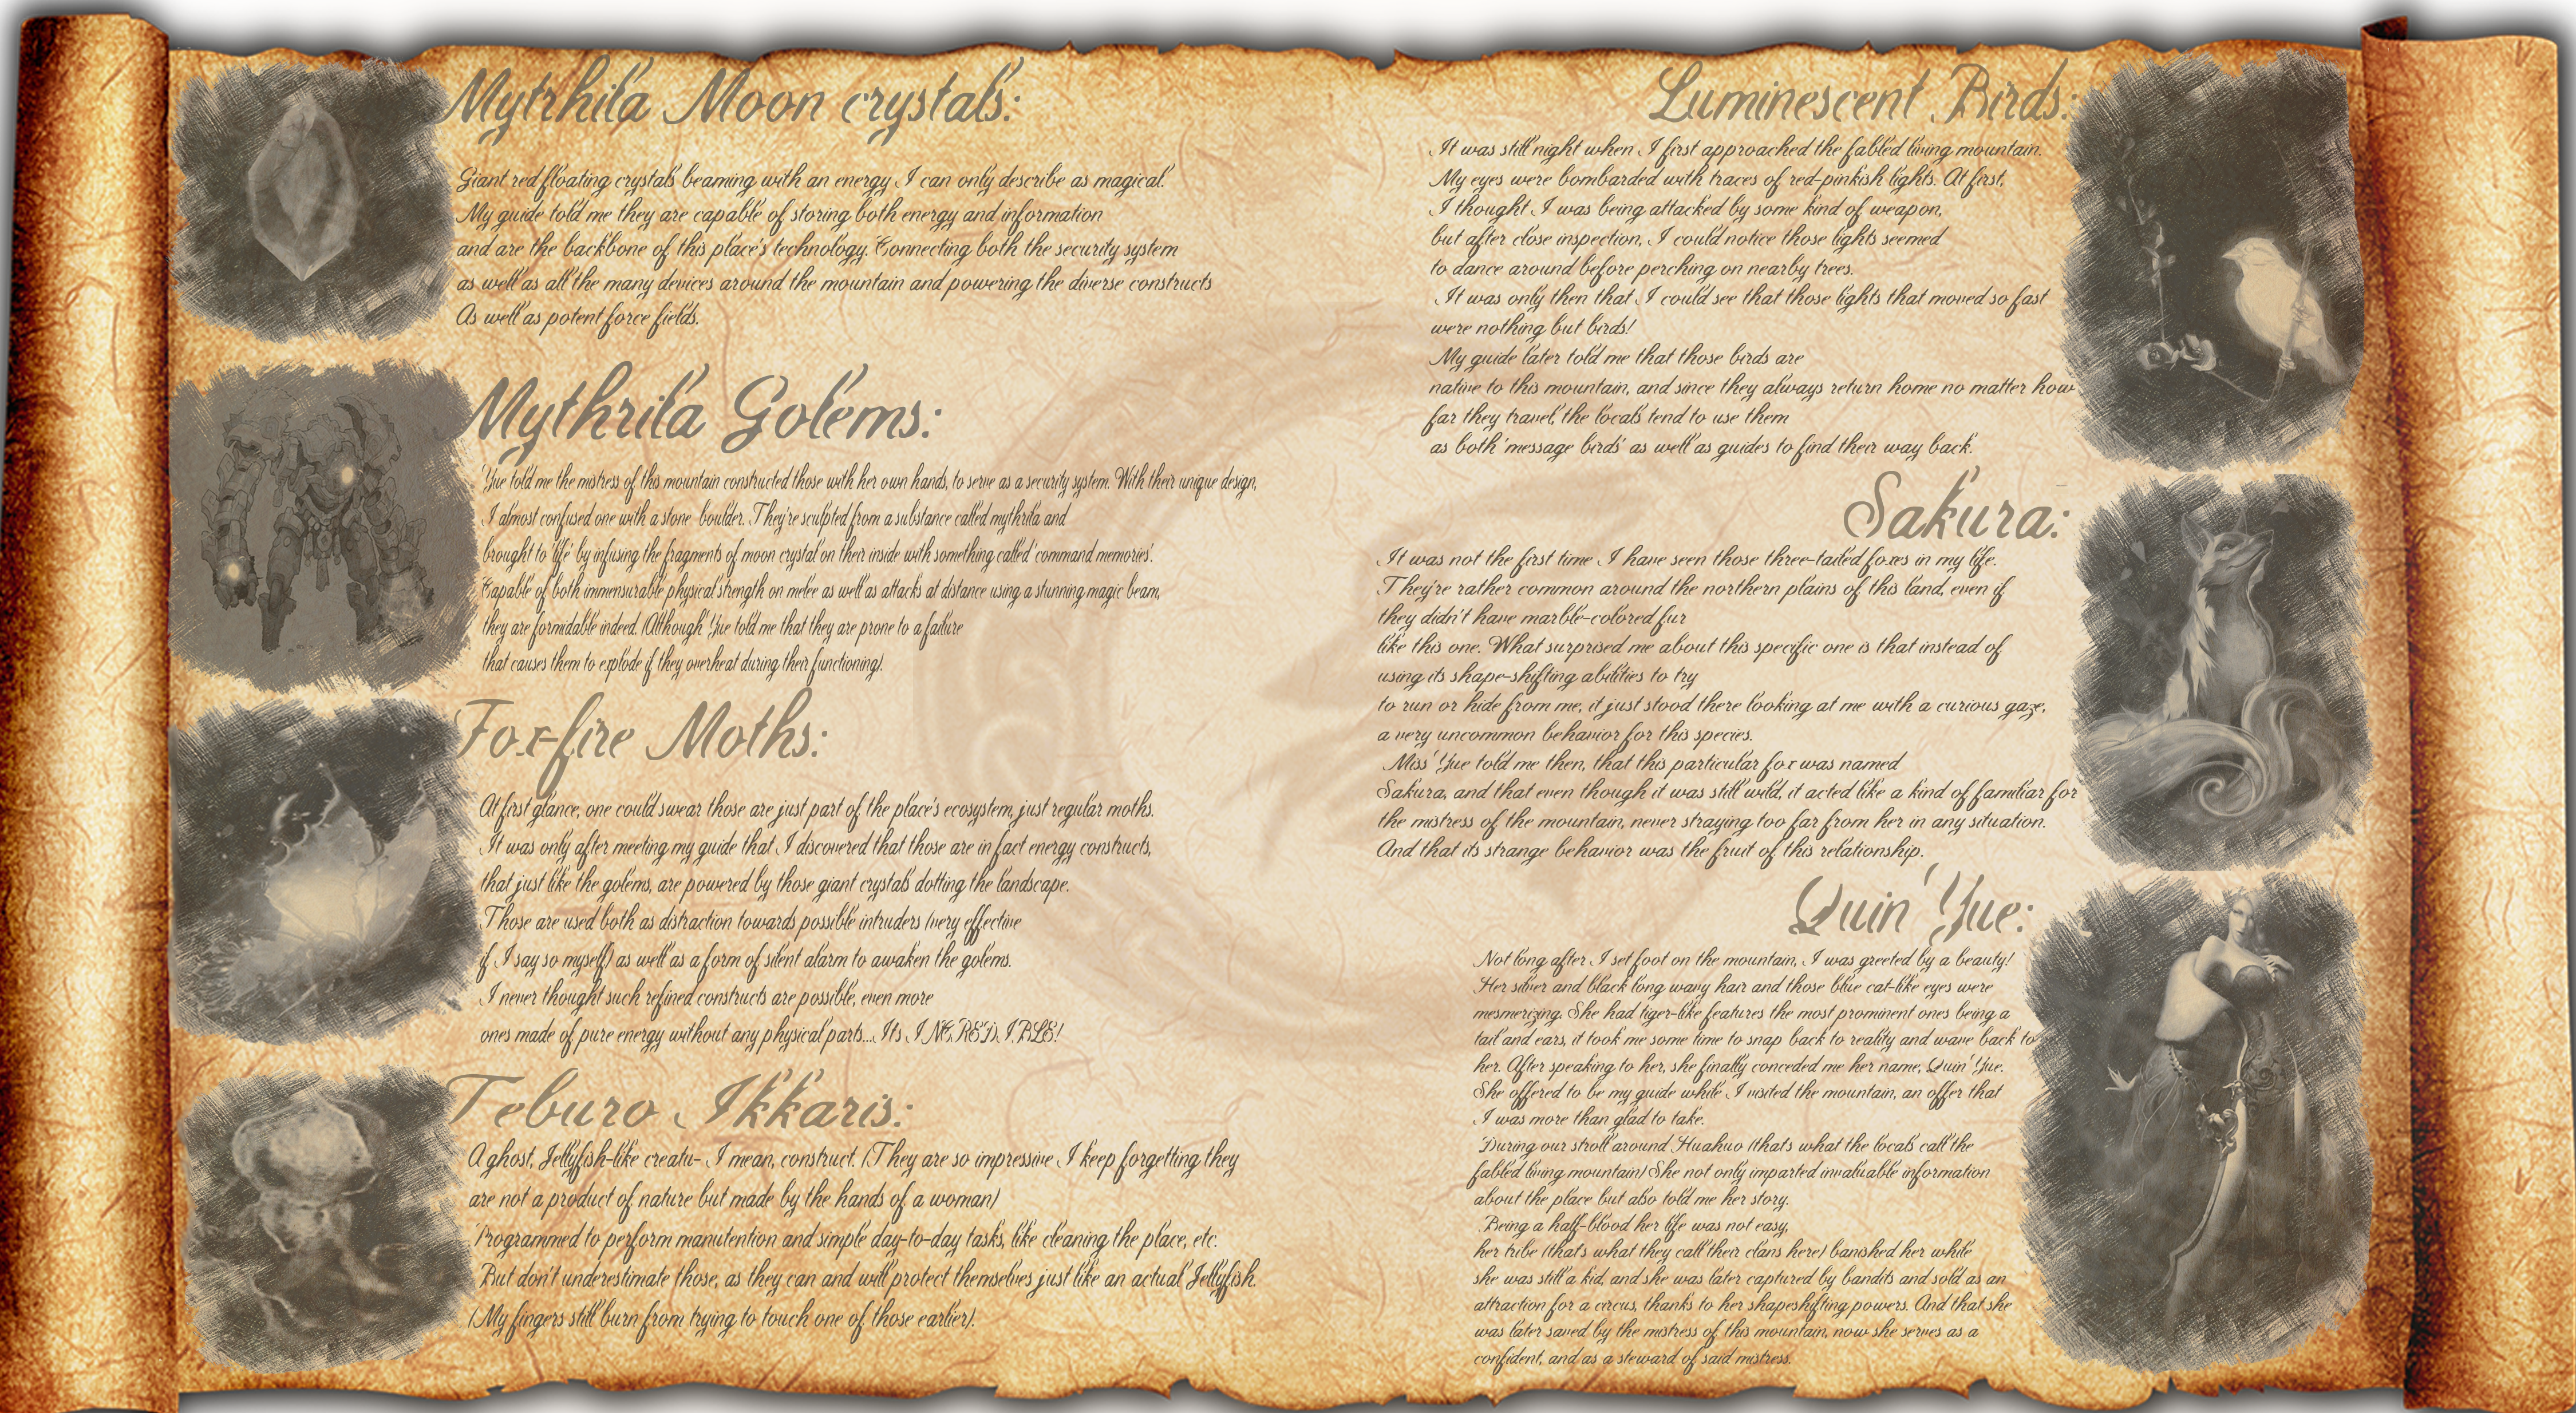 Mytrhila Moon crystals:
Giant red floating crystals beaming with an energy I can only describe as magical.
My guide told me they are capable of storing both energy and information
and are the backbone of this place's technology. Connecting both the security system
as well as all the many devices around the mountain and powering the diverse constructs
As well as potent force fields.
Mythrila Golems:
Yue told me the mistress of this mountain constructed those with her own hands, to serve as a security system. With their unique design,
I almost confused one with a stone boulder. They're sculpted from a substance called mythrila and
brought to 'life' by infusing the fragments of moon crystal on their inside with something called 'command memories'.
Capable of both immensurable physical strength on melee as well as attacks at distance using a stunning magic beam,
they are formidable indeed. (Although Yue told me that they are prone to a failure
that causes them to explode if they overheat during their functioning).
Fox-fire Moths:
At first glance, one could swear those are just part of the place's ecosystem, just regular moths.
It was only after meeting my guide that I discovered that those are in fact energy constructs,
that just like the golems, are powered by those giant crystals dotting the landscape.
Those are used both as distraction towards possible intruders (very effective
if I say so myself) as well as a form of silent alarm to awaken the golems.
I never thought such refined constructs are possible, even more
ones made of pure energy without any physical parts... Its INCREDIBLE!
Teburo Ikkaris:
A ghost, Jellyfish-like creatu- I mean, construct. (They are so impressive I keep forgetting they
are not a product of nature but made by the hands of a woman)
Programmed to perform manutention and simple day-to-day tasks, like cleaning the place, etc.
But don't underestimate those, as they can and will protect themselves just like an actual Jellyfish.
(My fingers still burn from trying to touch one of those earlier).
Luminescent Birds:
It was still night when I first approached the fabled living mountain.
My eyes were bombarded with traces of red-pinkish lights. At first,
I thought I was being attacked by some kind of weapon,
but after close inspection, I could notice those lights seemed
to dance around before perching on nearby trees.
It was only then that I could see that those lights that moved so fast
were nothing but birds!
My guide later told me that those birds are
native to this mountain, and since they always return home no matter how
far they travel, the locals tend to use them
as both 'message birds' as well as guides to find their way back.
Sakura:
It was not the first time I have seen those three-tailed foxes in my life.
They're rather common around the northern plains of this land, even if
they didn't have marble-colored fur
like this one. What surprised me about this specific one is that instead of
using its shape-shifting abilities to try
to run or hide from me, it just stood there looking at me with a curious gaze,
a very uncommon behavior for this species.
Miss Yue told me then, that this particular fox was named
Sakura, and that even though it was still wild, it acted like a kind of familiar for
the mistress of the mountain, never straying too far from her in any situation.
And that its strange behavior was the fruit of this relationship.
Quin Yue:
Not long after I set foot on the mountain, I was greeted by a beauty!
Her silver and black long wavy hair and those blue cat-like eyes were
mesmerizing. She had tiger-like features the most prominent ones being a
tail and ears, it took me some time to snap back to reality and wave back to
her. After speaking to her, she finally conceded me her name, Quin Yue.
She offered to be my guide while I visited the mountain, an offer that
I was more than glad to take.
During our stroll around Huahuo (thats what the locals call the
fabled living mountain) She not only imparted invaluable information
about the place but also told me her story.
Being a half-blood her life was not easy,
her tribe (thats what they call their clans here) banished her while
she was still a kid, and she was later captured by bandits and sold as an
attraction for a circus, thanks to her shapeshifting powers. And that she
was later saved by the mistress of this mountain, now she serves as a
confident, and as a steward of said mistress.